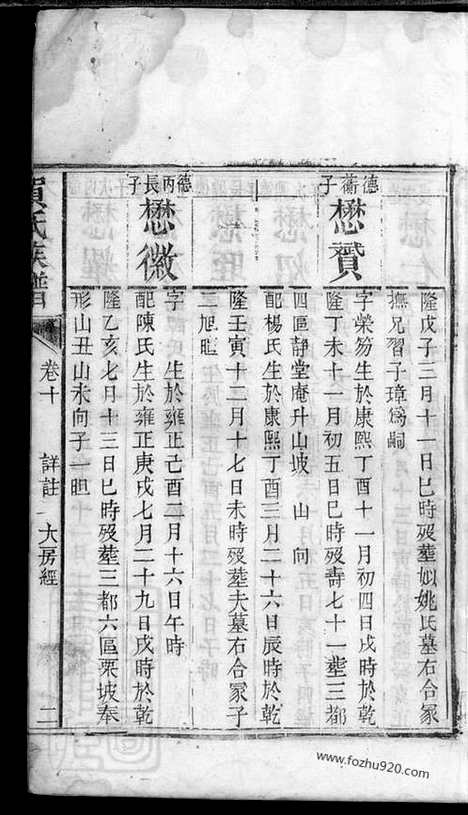 隆戊子三月十一日巳時歿塟姒姚氏墓右合冢
撫兄習子璋爲嗣
德舊子
懋贊
字榮笏生於康熙丁酉十一月初四日戌時於乾
隆丁未十一月初五日巳時歿壽七十一塟三都
四區靜堂庵升山坡　山　向
配楊氏生於康熙丁酉三月二十六日辰時於乾
隆壬寅十二月十七日未時歿塟夫墓右合冢子
三旭晅
德丙長子
懋徽
字　生於雍正己酉二月十六日午時
配陳氏生於雍正庚戌七月二十九日戌時於乾
隆乙亥七月十三日巳時歿塟三都六區栗坡奉
形山丑山未向子一晅
賀氏族譜
卷十
詳註
大房經
二
www.fozhu920.com